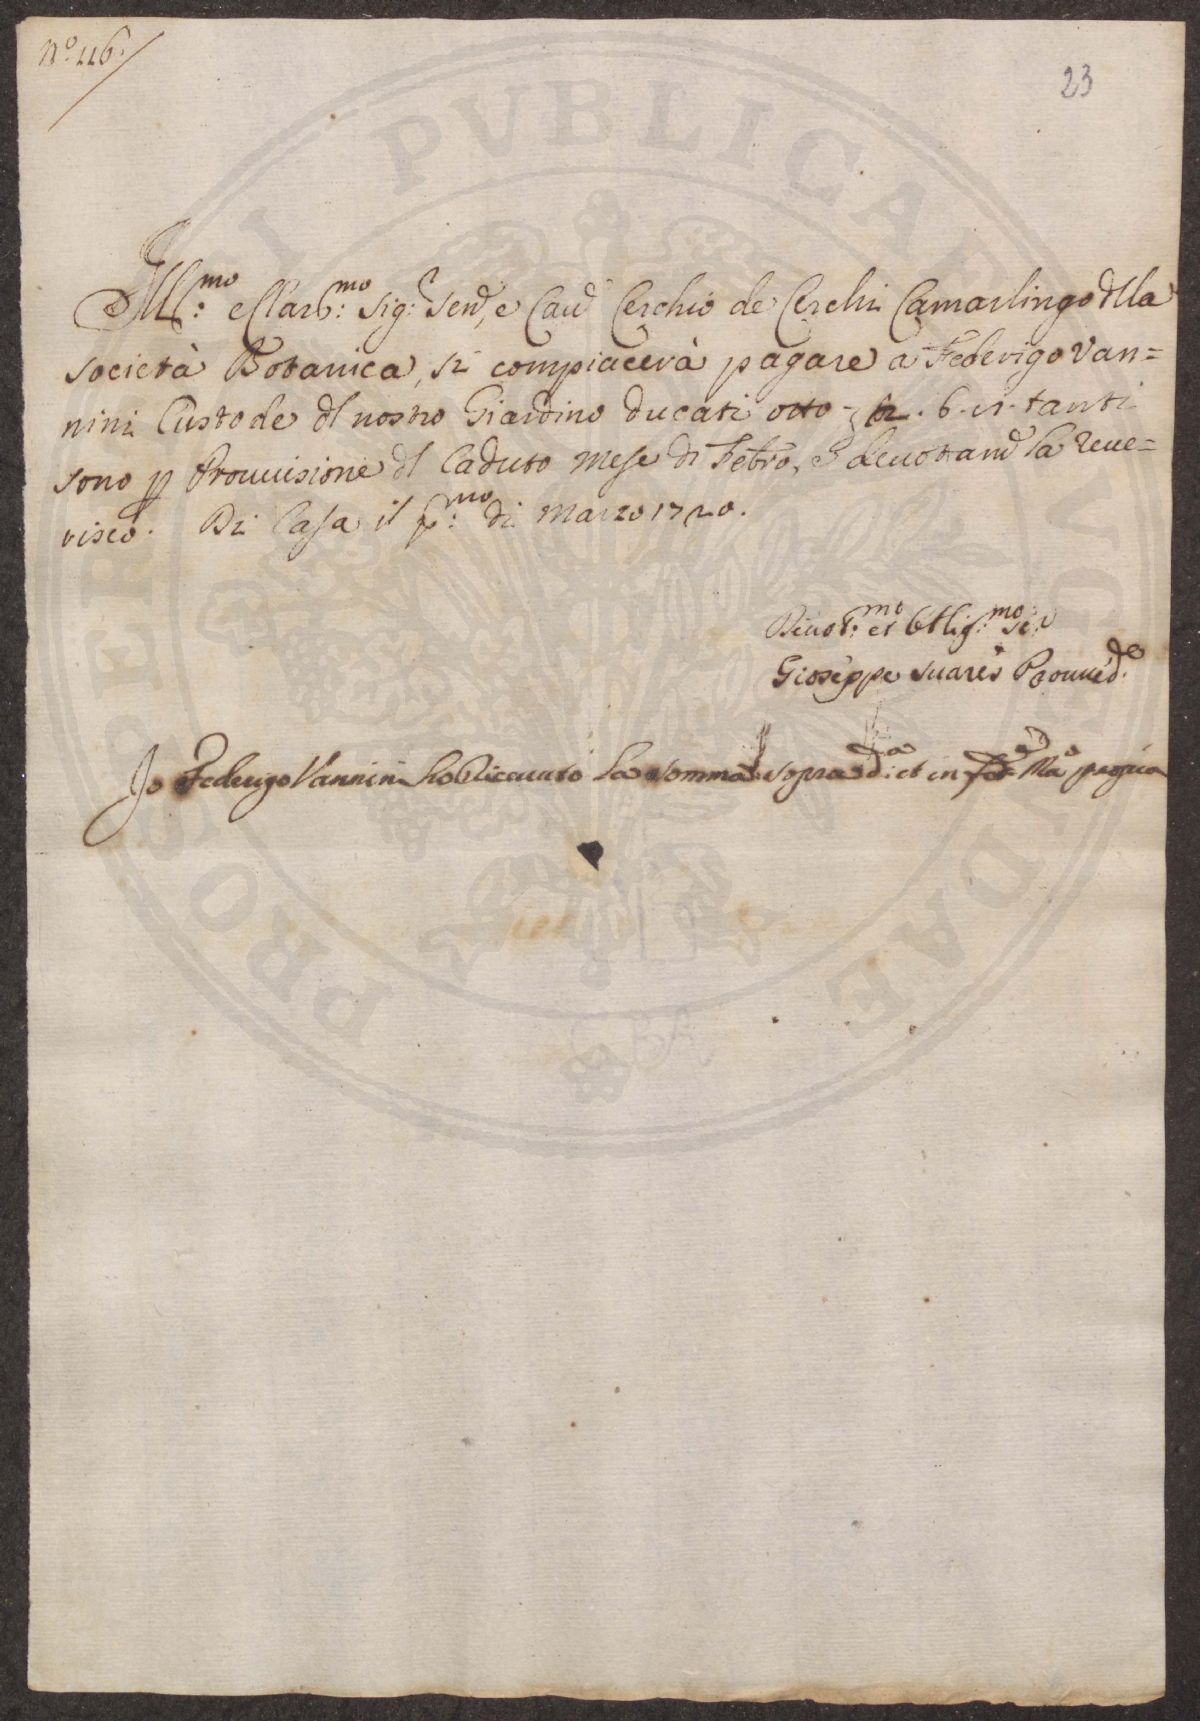 N.º 116.
23
Ill:mo e Claris:mo Sig: Sen.e, e Cav.e Cerchio de Cerchi Camarlingo dlla
Società Botanica, si compiacerà pagare a Federigo Van=
nini Custode dl nostro Giardino ducati otto 6. tanti
sono p Provvisione dl Caduto mese di Febro, e devotam.e la reve=
risco. Di Casa il p:mo di Marzo 1720.
Devot:mo et Obblig:mo Se:
Giuseppe Suares Provved.
Io Federigo Vannini ho Riceuuto la somma sopra d.a et in fede Mano propria
PROSPERITATI PVBLICAE AVGENDAE